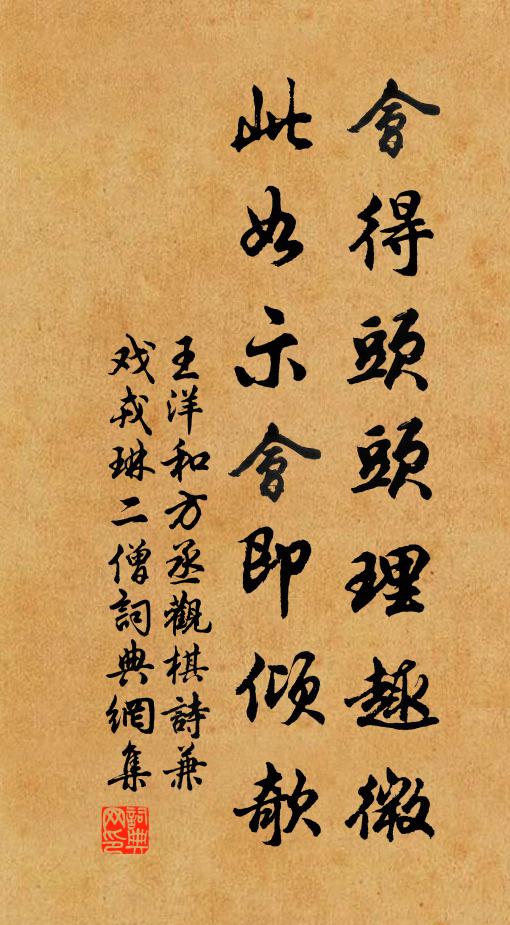 會得頭頭理趣微
此如示會即傾欹
王洋和方丞觀棋詩兼
戏戎琳二僧詞典網集
詞典网印